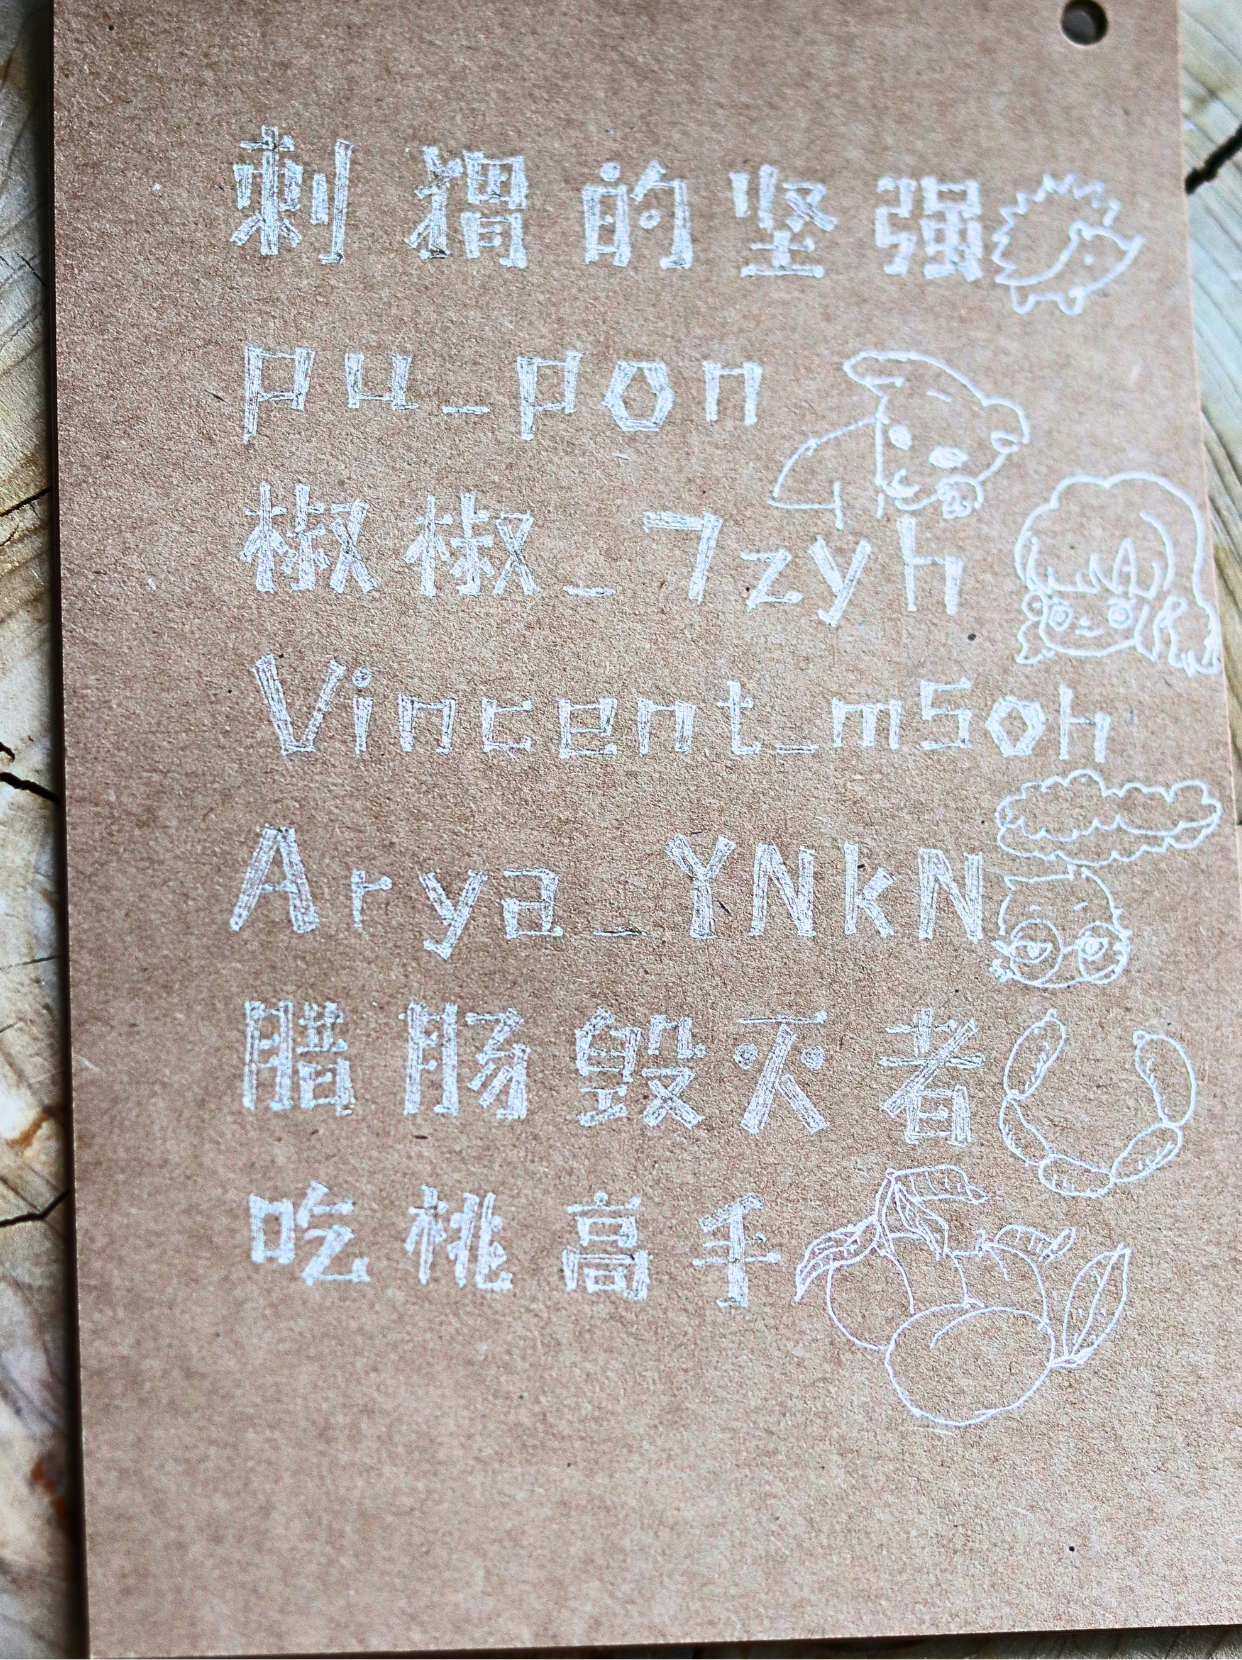 刺猬的坚强
pu_pon
椒椒_7zyh
Vincent_m5oh
Arya_YNkN
腊肠毁灭者
吃桃高手